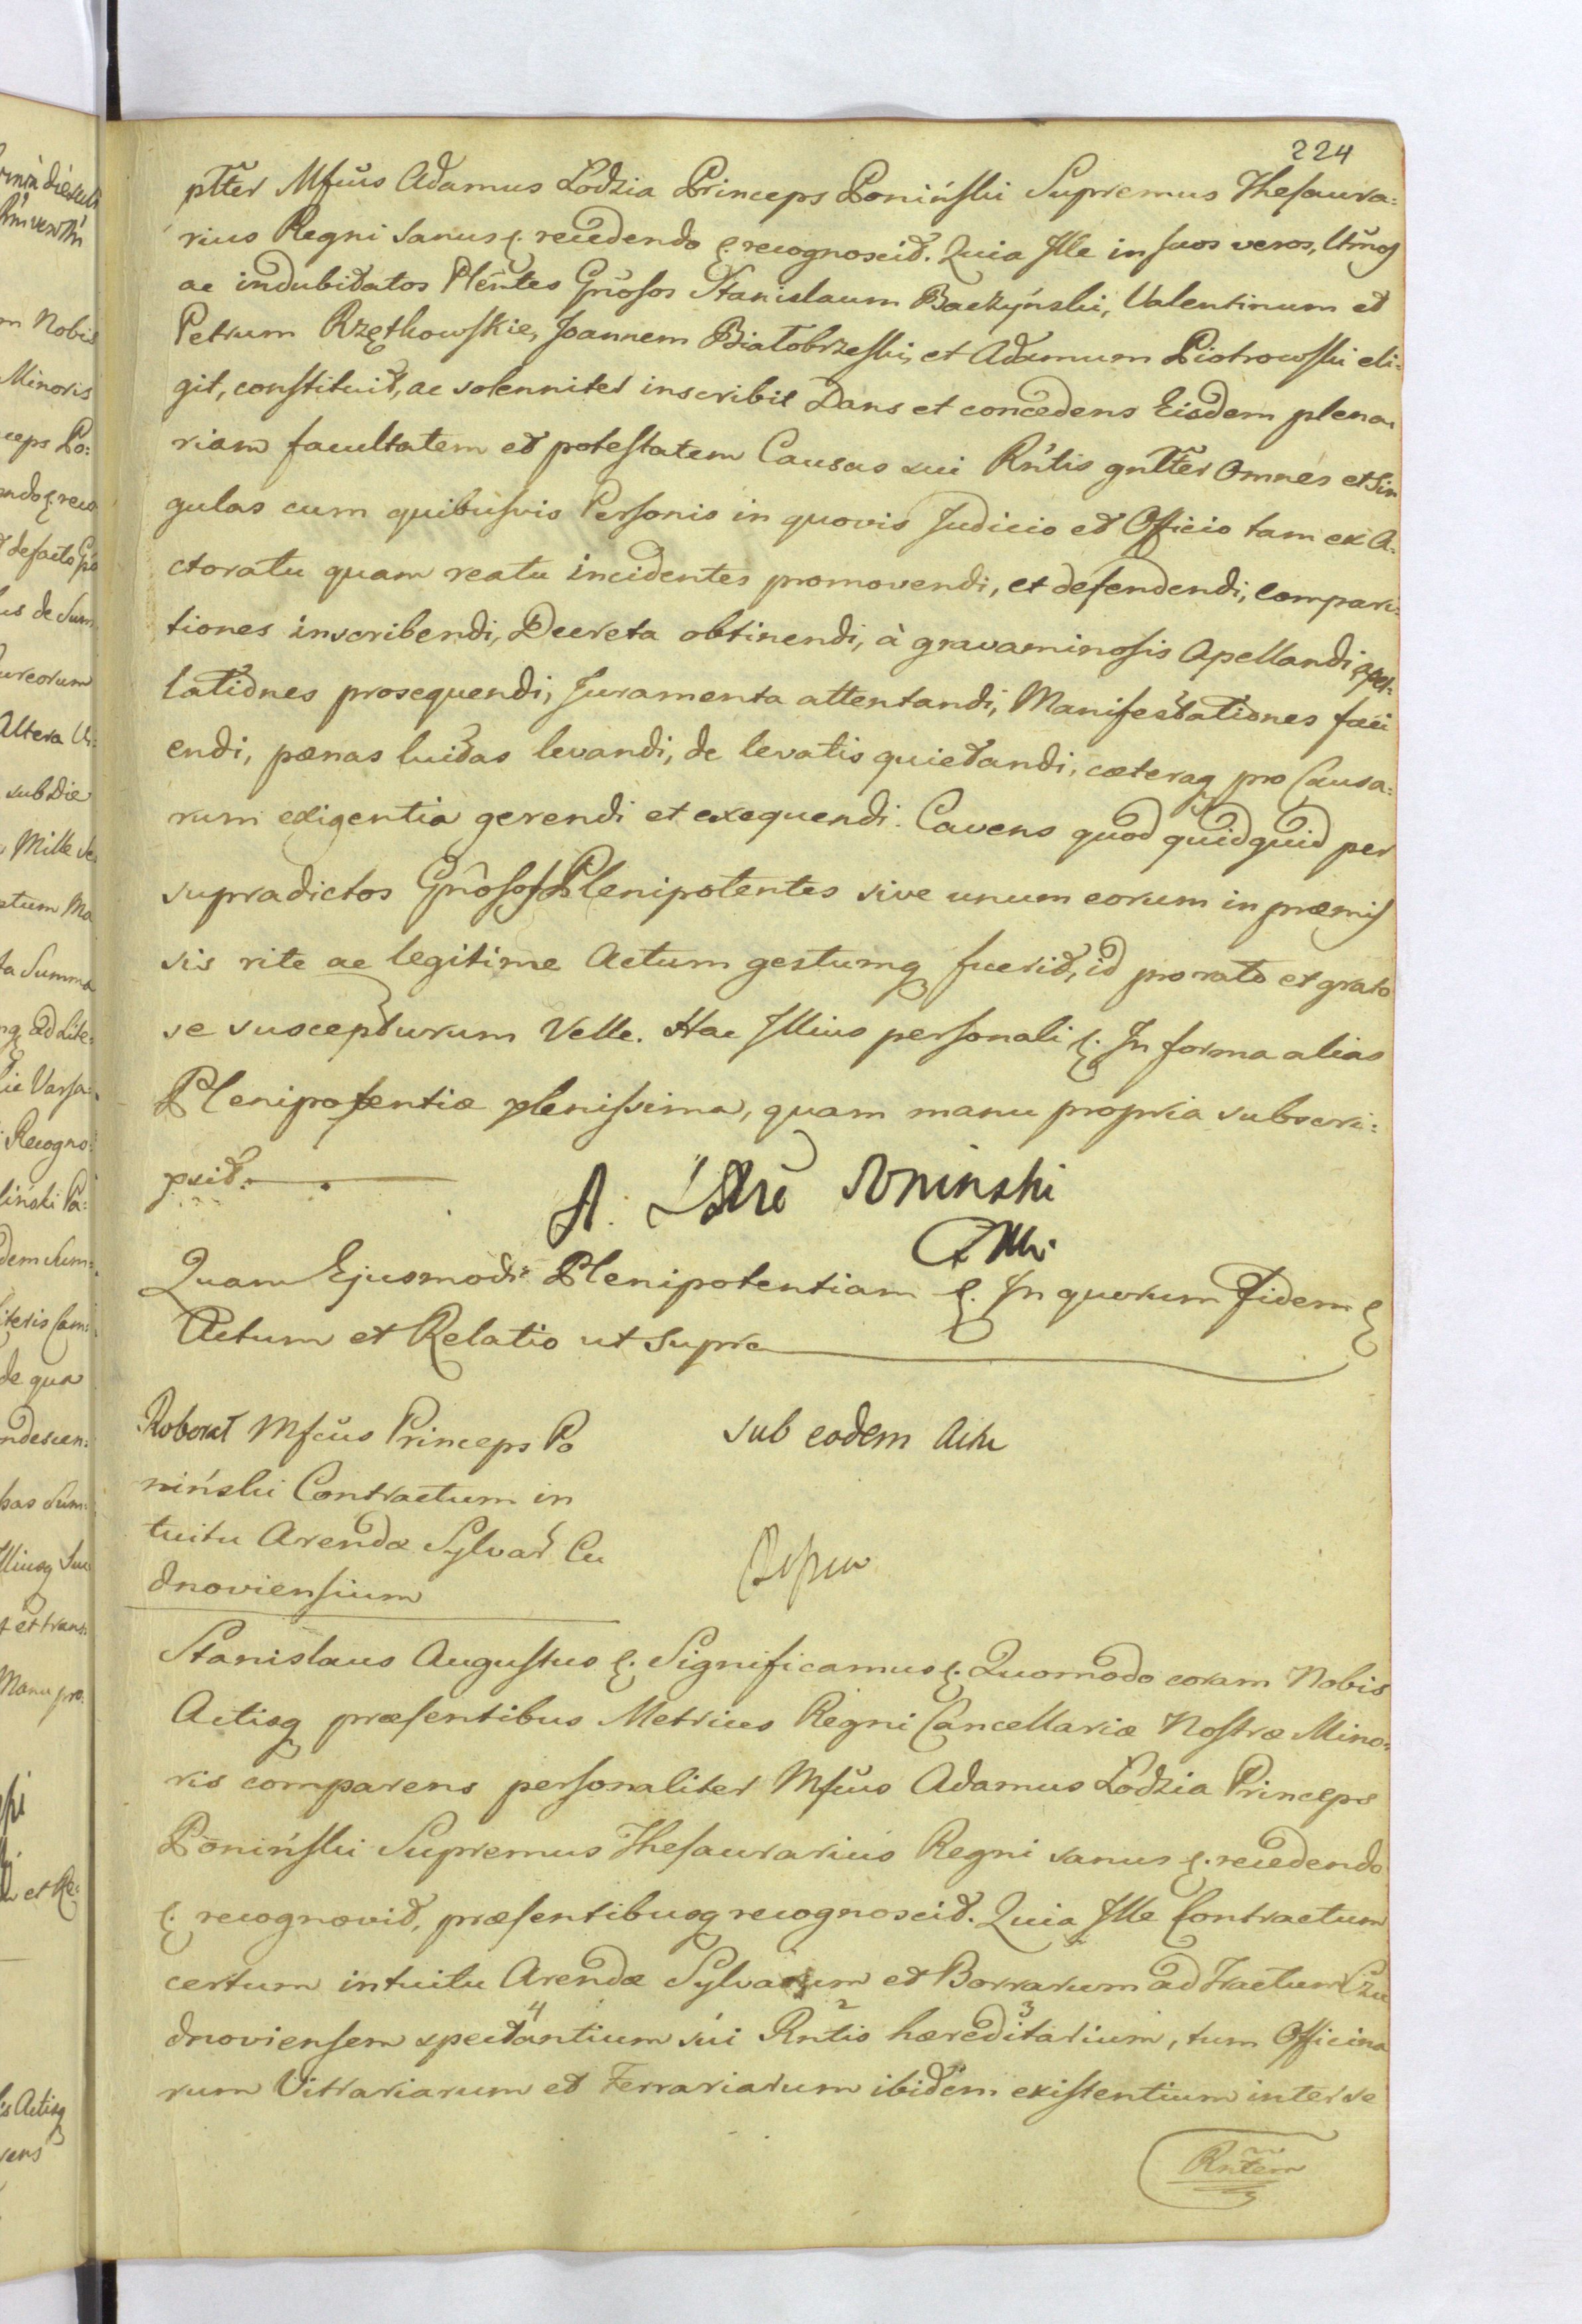 224
pltter Mfcus Adamus Lodzia Princeps Poniński Supremus Thesaura:
rius Regni Sanus &. recedendo &. recognoscit. Quia Ille in suos veros, Utmos
ac indubitatos Plentes Gnosos Stanislaum Baczyński, Valentinum et
Petrum Rzętkowskie, Joannem Białobrzeski, et Adamum Piotrowski eli:
git, constituit, ac solenniter inscribit Dans et concedens Eisdem plena:
riam facultatem et potestatem Causas sui Rntis gnltter Omnes et Sin
gulas cum quibusvis Personis in quovis Judicio et Officio tam ex A:
ctoratu quam reatu incidentes promovendi, et defendendi, compari:
tiones inscribendi, Decreta obtinendi, à gravaminosis Apellandi apel:
lationes prosequendi, Juramenta attentandi, Manifestationes faci
endi, pœnas luitas levandi, de levatis quietandi, cæteraq pro Causa:
rum exigentia gerendi et exequendi. Cavens quod quidquid per
supradictos Gnosos Plenipotentes sive unum eorum in præmis
sis rite ac legitime Actum gestumq fuerit, id pro rato et grato
se suscepturum Velle. Hac Illius personali &. In forma alias
Plenipotentiæ plenissima, quam manu propria subscri:
psit.
A. Poninski
Quam Ejusmodi Plenipotentiam &. In quorum Fidem &
Actum et Relatio ut supra
Roborat Mfcus Princeps Po
niński Contractum in
tuitu Arendæ Sylvar Cu
dnoviensium
sub eodem Actu
Stanislaus Augustus &. Significamus &. Quomodo coram Nobis
Actisq præsentibus Metrices Regni Cancellariæ Nostræ Mino:
ris comparens personaliter Mfcus Adamus Lodzia Princeps
Poniński Supremus Thesaurarius Regni sanus &. recedendo
&. recognovit, præsentibusq recognoscit. Quia Ille Contractum
certum intuitu Arendæ Sylvarum et Borrarum ad Tractum Czu
dnoviensem spectantium sui Rntis hæreditarium, tum Officina
rum Vitrariarum et Ferrariarum ibidem existentium inter se
Rntem